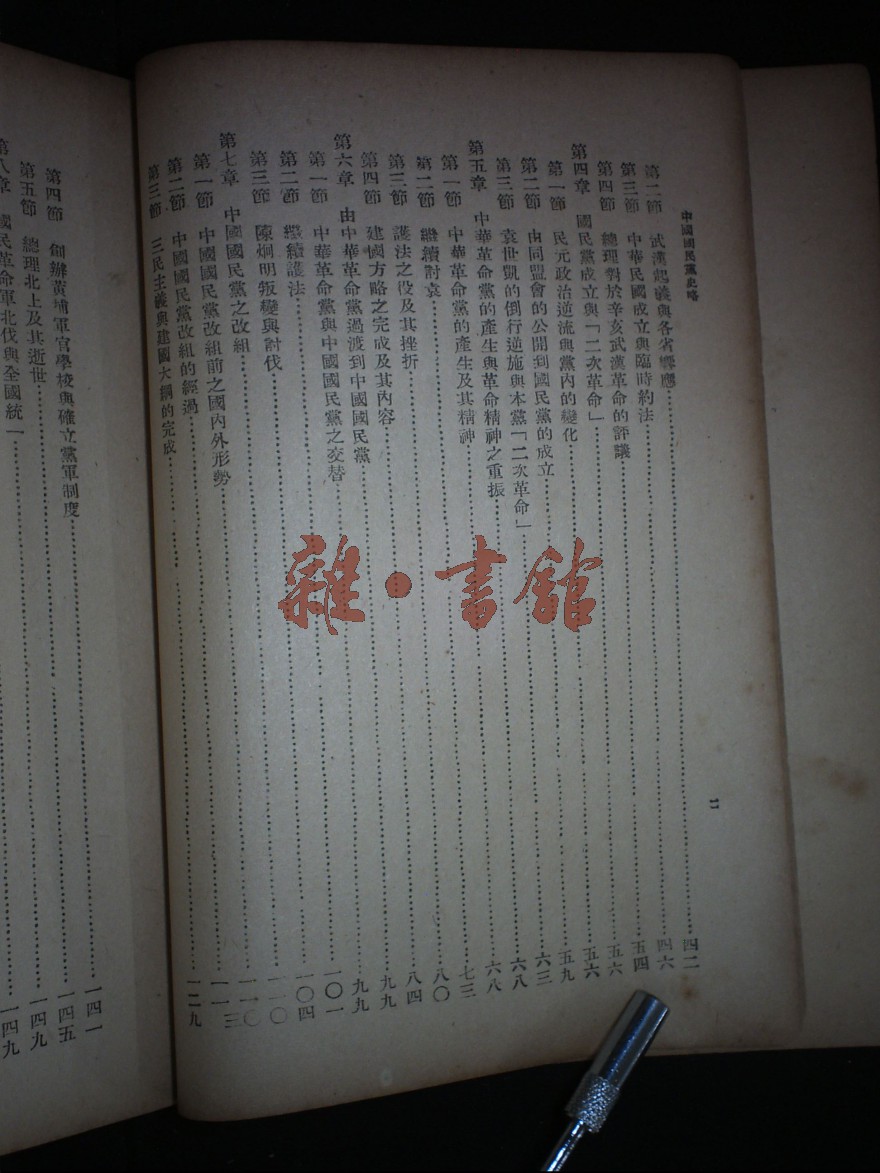 中國國民黨史略
二
第二節 武漢起義與各省響應……四二
第三節 中華民國成立與臨時約法……四六
第四節 總理對於辛亥武漢革命的評議……五四
第四章 國民黨成立與「二次革命」……五六
第一節 民元政治逆流與黨內的變化……五六
第二節 由同盟會的公開到國民黨的成立……五九
第三節 袁世凱的倒行逆施與本黨「二次革命」……六三
第五章 中華革命黨的產生與革命精神之重振……六八
第一節 中華革命黨的產生及其精神……六八
第二節 繼續討袁……七三
第三節 護法之役及其挫折……八〇
第四節 建國方略之完成及其內容……八四
第六章 由中華革命黨過渡到中國國民黨……九九
第一節 中華革命黨與中國國民黨之交替……九九
第二節 繼續護法……一〇一
第三節 陳炯明叛變與討伐……一〇四
第七章 中國國民黨之改組……一一〇
第一節 中國國民黨改組前之國內外形勢……一一〇
第二節 中國國民黨改組的經過……一一三
第三節 三民主義與建國大綱的完成……一二九
第四節 創辦黃埔軍官學校與確立黨軍制度……一四一
第五節 總理北上及其逝世……一四五
第八章 國民革命軍北伐與全國統一……一四九
一四九
雜·書館